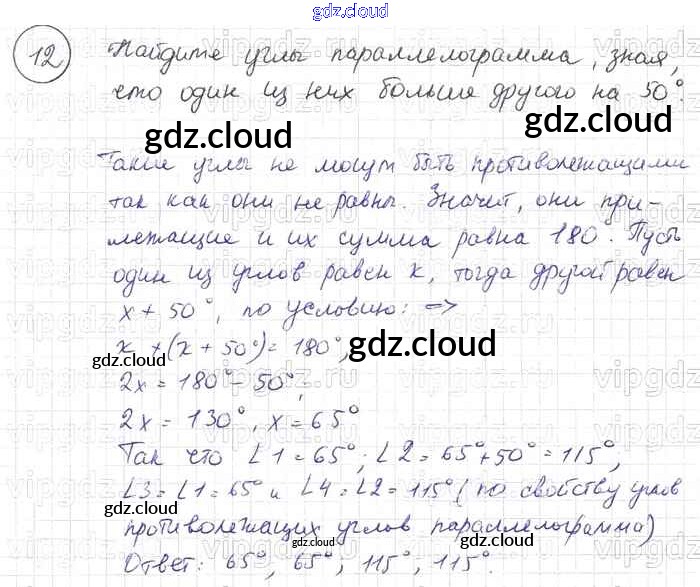 gdz.cloud
12 Найдите углы параллелограмма, зная,
что один из них больше другого на 50°.
gdz.cloud
gdz.cloud
Такие углы не могут быть противолежащими
так как они не равны. Значит, они при-
лежащие и их сумма равна 180°. Пусть
один из углов равен x, тогда другой равен
x + 50°, по условию: =>
x + (x + 50°) = 180°,
gdz.cloud
gdz.cloud
2x = 180° - 50°;
2x = 130°, x = 65°
Так что ∠1 = 65°; ∠2 = 65° + 50° = 115°,
∠3 = ∠1 = 65° и ∠4 = ∠2 = 115° (по свойству углов
противолежащих углов параллелограмма)
gdz.cloud
Ответ: 65°, 65°, 115°, 115°.
gdz.cloud